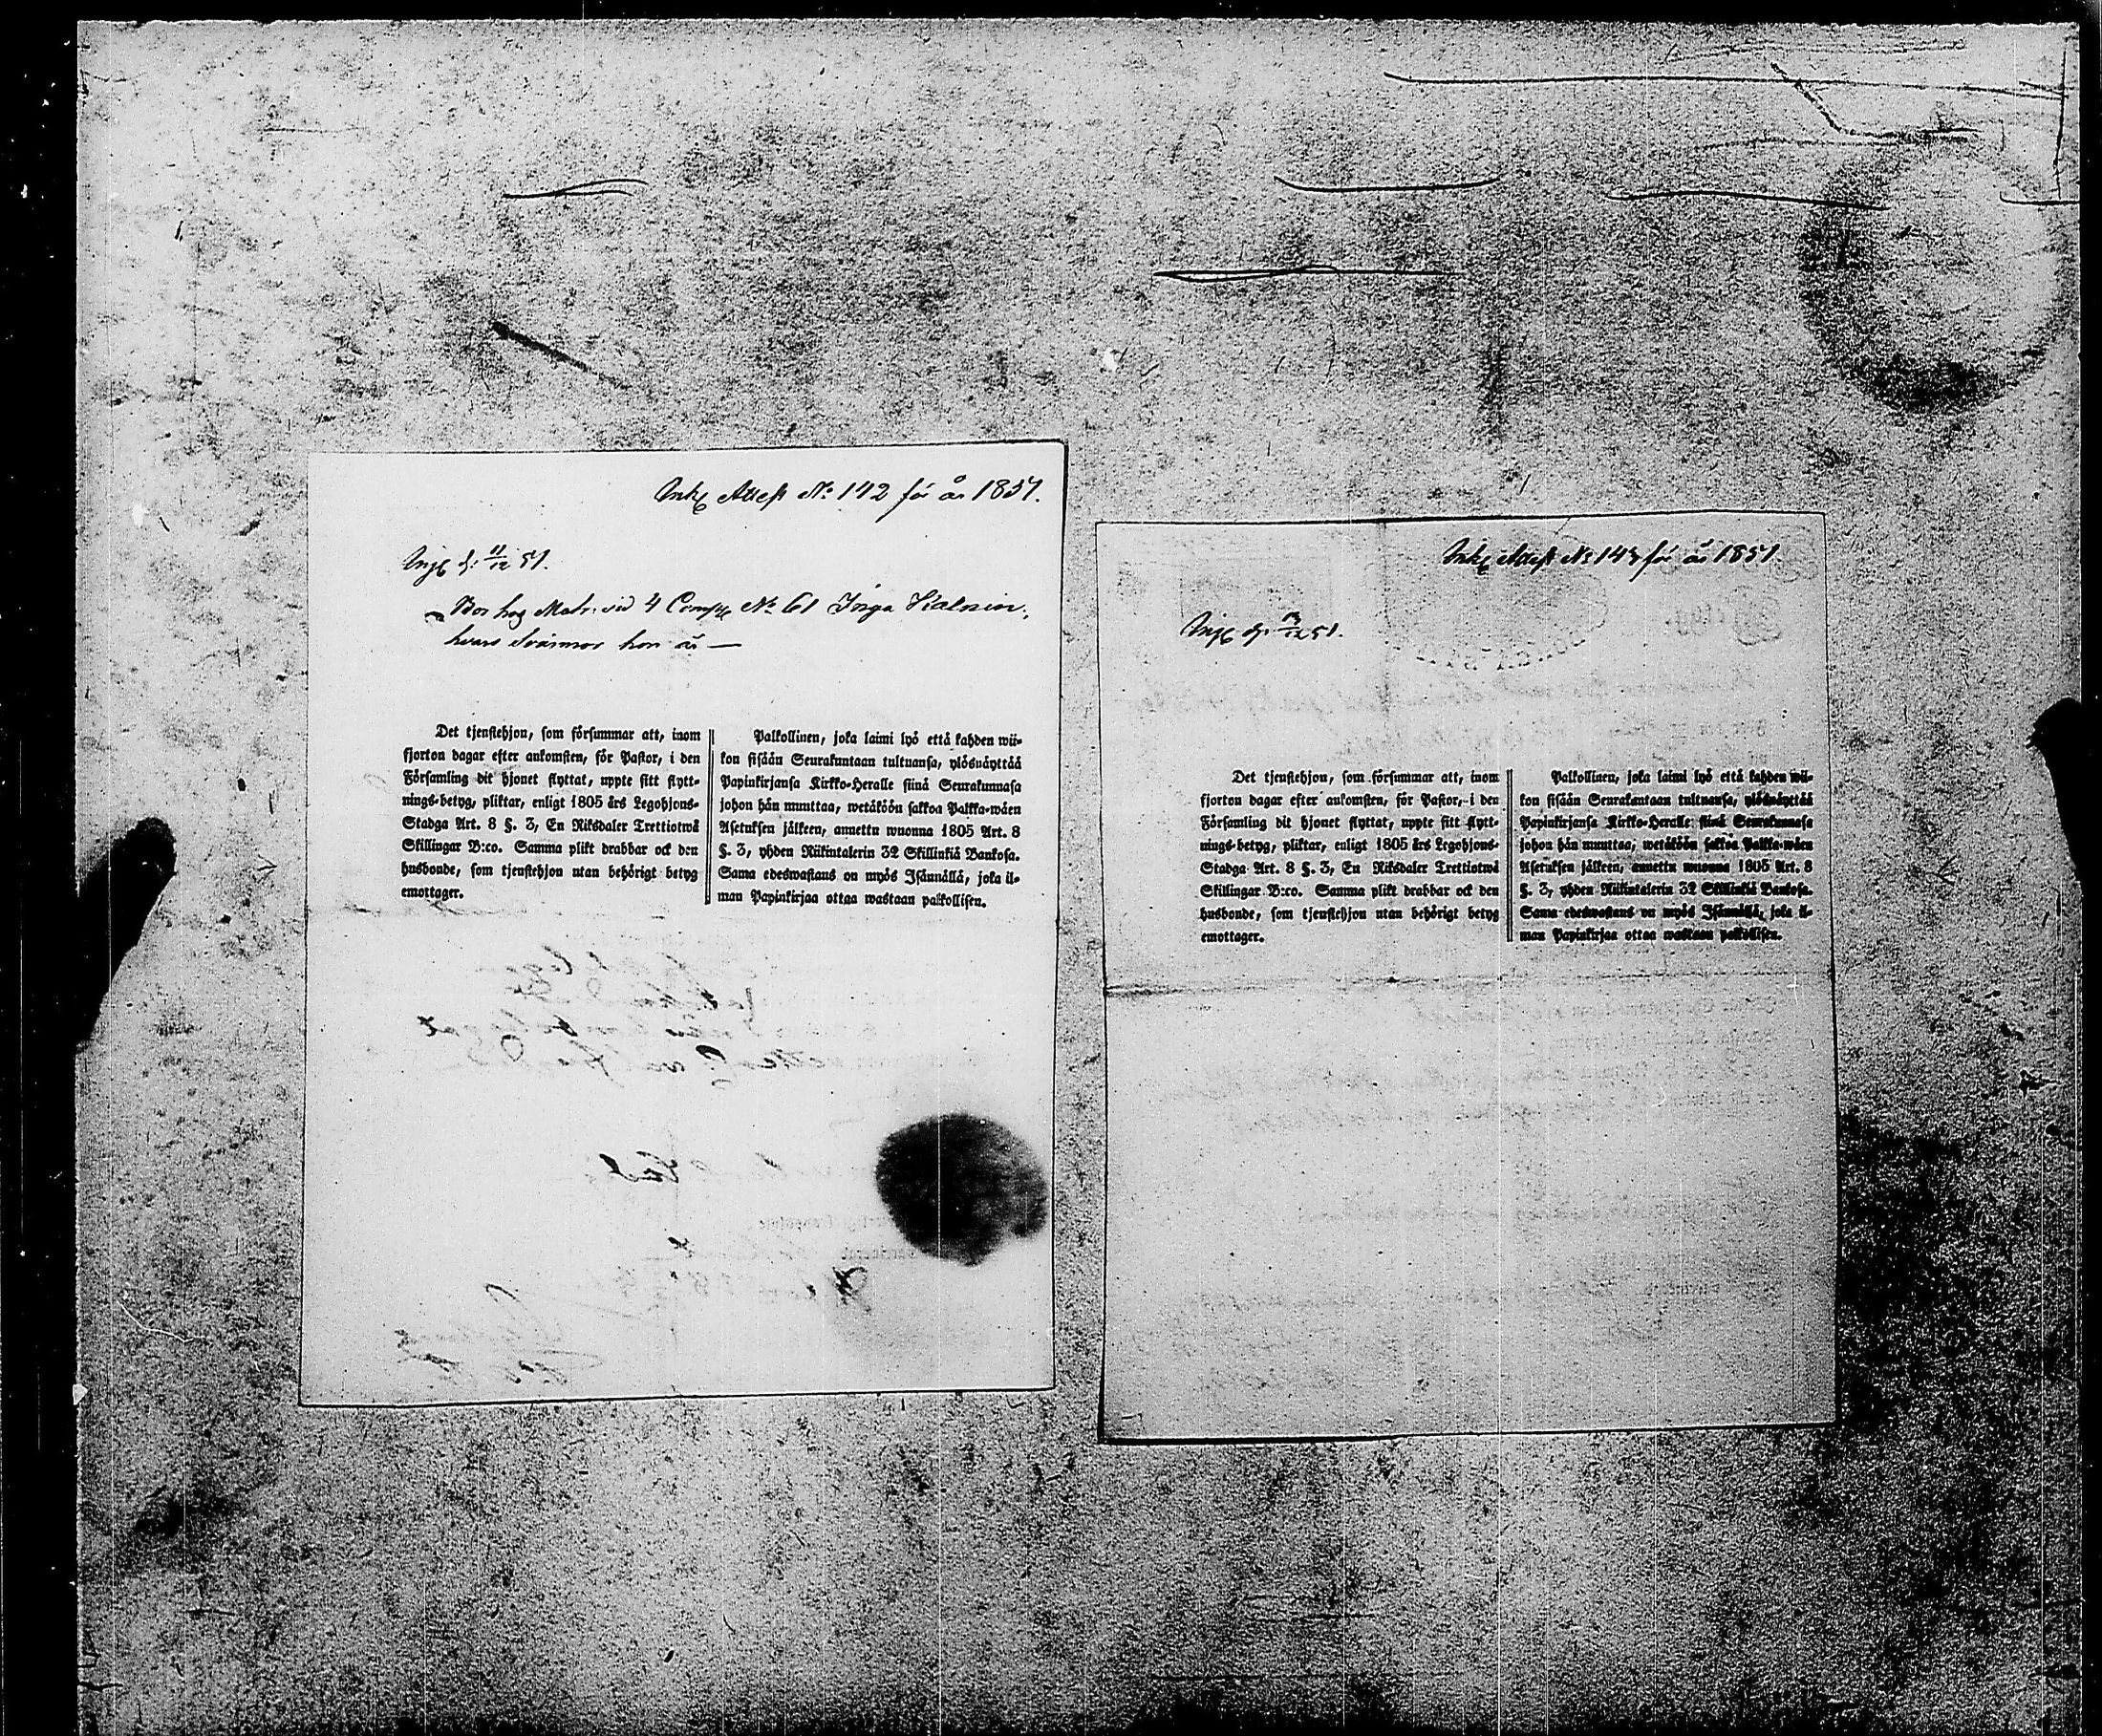 Inkg Attest No 142 för år 1851.
Ingg d: 11/12 51.
Bor hog Matr: vid 4 Comp No 61
hvars Svärmor hon är —
Det tjenstehjon, som försummar att, inom
fjorton dagar efter ankomsten, för Pastor, i den
Församling dit hjonet flyttat, uppte sitt flytt-
nings-betyg, pliktar, enligt 1805 års Legohjons-
Stadga Art. 8 §. 3, En Riksdaler Trettiotwå
Skillingar B:co. Samma plikt drabbar ock den
husbonde, som tjenstehjon utan behörigt betyg
emottager.
Palkollinen, joka laimi lyö että kahden wii-
kon sisään Seurakuntaan tultuansa, ylösnäyttää
Papinkirjansa Kirkko-Heralle siinä Seurakunnasa
johon hän muuttaa, wetäköön sakkoa Palkka-wäen
Asetuksen jälkeen, annettu wuonna 1805 Art. 8
§. 3, yhden Riikintalerin 32 Skillinkiä Bankosa.
Sama edeswastaus on myös Isännällä, joka il-
man Papinkirjaa ottaa wastaan palkollisen.
Inkg Attest No 143 för år 1851.
Ingg d: 12 51.
Det tjenstehjon, som försummar att, inom
fjorton dagar efter ankomsten, för Pastor, i den
Församling dit hjonet flyttat, uppte sitt flytt-
nings-betyg, pliktar, enligt 1805 års Legohjons-
Stadga Art. 8 §. 3, En Riksdaler Trettiotwå
Skillingar B:co. Samma plikt drabbar ock den
husbonde, som tjenstehjon utan behörigt betyg
emottager.
Palkollinen, joka laimi lyö että kahden wii-
kon sisään Seurakuntaan tultuansa, ylösnäyttää
Papinkirjansa Kirkko-Heralle siinä Seurakunnasa
johon hän muuttaa, wetäköön sakkoa Palkka-wäen
Asetuksen jälkeen, annettu wuonna 1805 Art. 8
§. 3, yhden Riikintalerin 32 Skillinkiä Bankosa.
Sama edeswastaus on myös Isännällä, joka il-
man Papinkirjaa ottaa wastaan palkollisen.